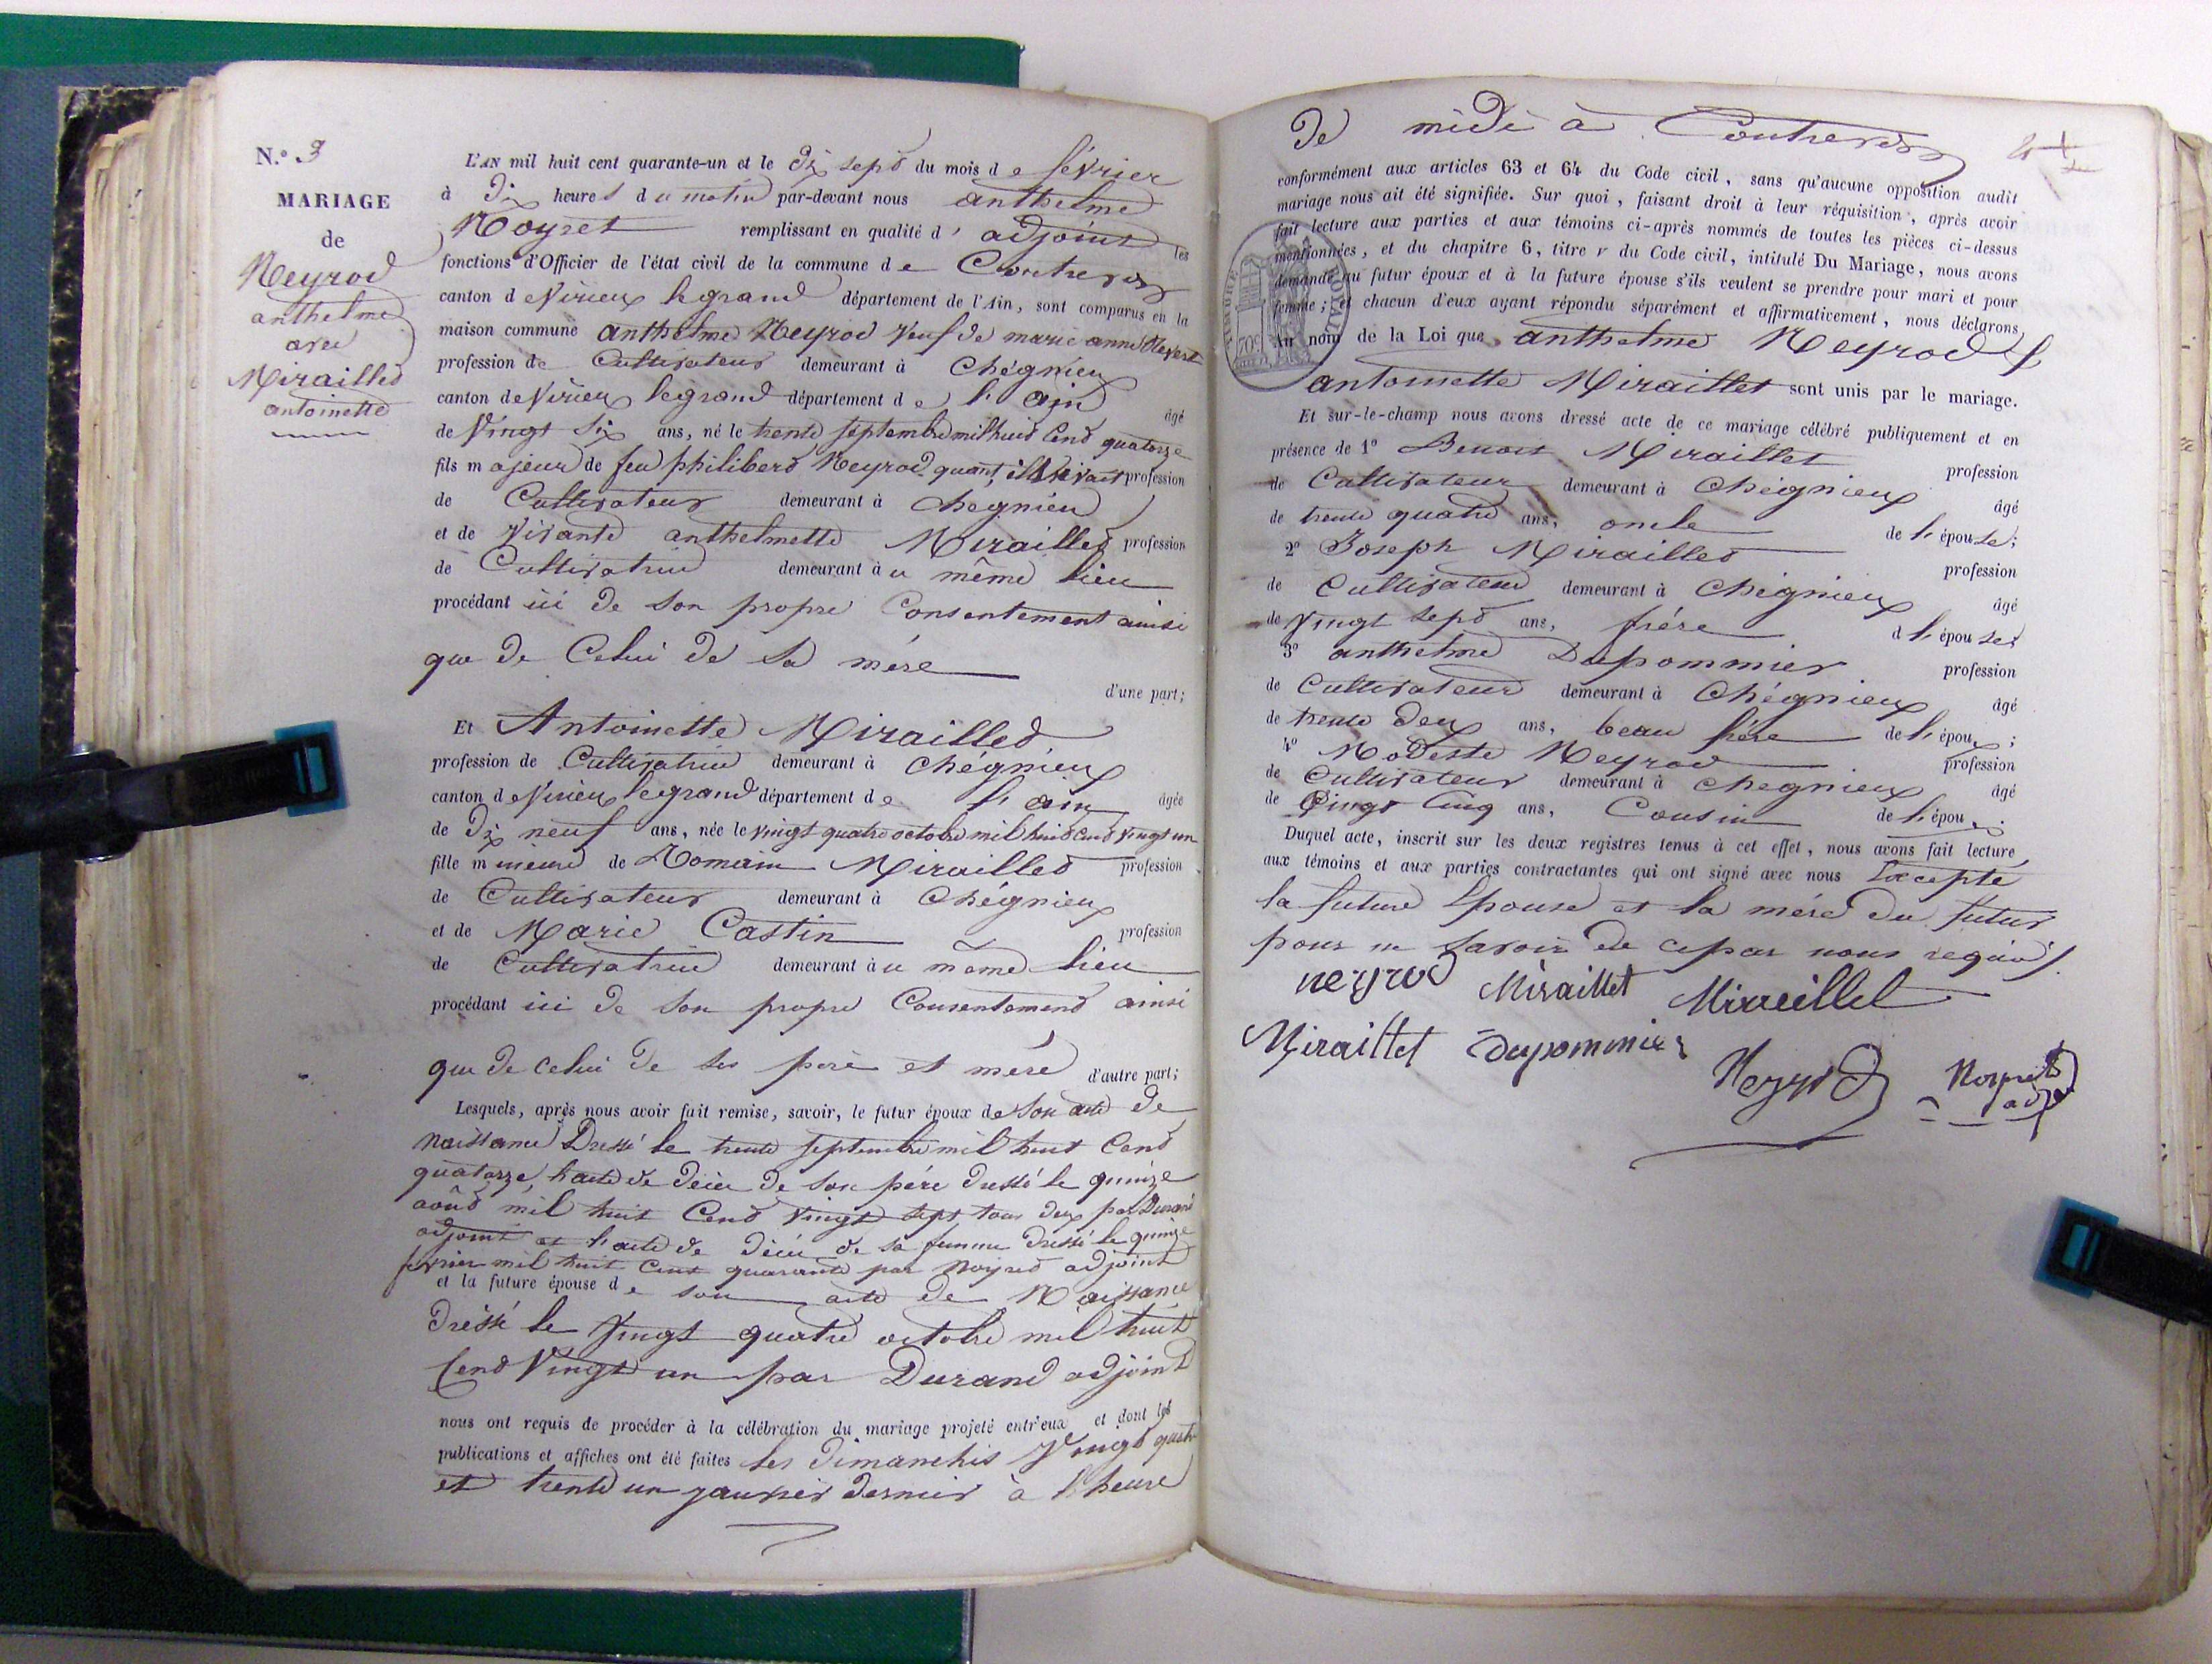 N.o 3
MARIAGE
de
Neyrod
anthelme
avec
Miraillet
antoinette
L'AN mil huit cent quarante-un et le dix sept du mois de février
à dix heures du matin par-devant nous anthelme
Noyret remplissant en qualité d' adjoint les
fonctions d'Officier de l'état civil de la commune de Contrevoz
canton de Virieux le grand département de l'Ain, sont comparus en la
maison commune anthelme Neyrod veuf de marie anne
profession de Cultivateur demeurant à Chégnieux
canton de Virieux le grand département de l'ain âgé
de Vingt Six ans, né le trente septembre mil huit Cent quatorze
fils majeur de feu philibert Neyrod quant il vivait profession
de Cultivateur demeurant à Chegnieu
et de Vivante anthelmette Miraillet profession
de Cultivatrice demeurant à u même lieu
procédant ici de son propre Consentement ainsi
que de Celui de sa mére
d'une part;
Et Antoinette Miraillet
profession de Cultivatrice demeurant à Chégnieux
canton de Virieux le grand département de l'ain âgée
de Dix neuf ans, née le vingt quatre octobre mil huit Cent vingt un
fille mineure de Romain Miraillet profession
de Cultivateur demeurant à Chégnieux
et de Marie Castin profession
de Cultivatrice demeurant à u même lieu
procédant ici de son propre Consentement ainsi
que de celui de ses père et mére d'autre part;
Lesquels, après nous avoir fait remise, savoir, le futur époux de son acte de
Naissance Dressé le trente septembre mil huit Cent
quatorze, l'acte de décés de son pére dressé le quinze
août mil huit Cent vingt sept tous deux par Durand
adjoint et l'acte de décés de sa femme dressé le quinze
fevrier mil huit cent quarante par Noyret adjoint
et la future épouse de son acte de Naissance
dréssé le Vingt quatre octobre mil huit
Cent Vingt un par Durand adjoint
nous ont requis de procéder à la célébration du mariage projeté entr'eux et dont les
publications et affiches ont été faites les dimanches Vingt quatre
et trente un janvier dernier à l'heure
de midi à Contrevoz
conformément aux articles 63 et 64 du Code civil, sans qu'aucune opposition audit
mariage nous ait été signifiée. Sur quoi, faisant droit à leur réquisition, après avoir
fait lecture aux parties et aux témoins ci-après nommés de toutes les pièces ci-dessus
mentionnées, et du chapitre 6, titre v du Code civil, intitulé Du Mariage, nous avons
demandé au futur époux et à la future épouse s'ils veulent se prendre pour mari et pour
femme; et chacun d'eux ayant répondu séparément et affirmativement, nous déclarons
Au nom de la Loi que anthelme Neyrod &
antoinette Miraillet sont unis par le mariage.
Et sur-le-champ nous avons dressé acte de ce mariage célébré publiquement et en
présence de 1o Benoit Miraillet profession
de Cultivateur demeurant à Chégnieux âgé
de trente quatre ans, oncle de l'épouse;
2o Joseph Miraillet profession
de Cultivateur demeurant à Chégnieux âgé
de Vingt sept ans, frére d l'épouse
3o anthelme Dupommier profession
de Cultivateur demeurant à Chégnieux âgé
de trente deux ans, beau frére de l'époux;
4o Modeste Neyrod profession
de Cultivateur demeurant à Chegnieux âgé
de Vingt Cinq ans, Cousin de l'époux.
Duquel acte, inscrit sur les deux registres tenus à cet effet, nous avons fait lecture
aux témoins et aux parties contractantes qui ont signé avec nous Excepté
la future Epouse et la mére du futur
pour ne savoir de ce par nous requis
neyrod Miraillet Miraillet
Miraillet Dupommier
Neyrod Noyret
adj
TIMBRE ROYAL